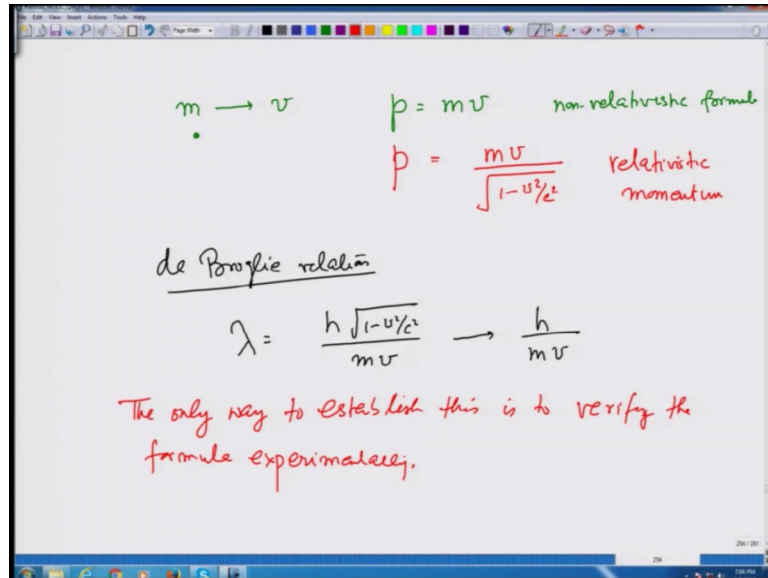 File Edit View Insert Actions Tools Help
Page Width
m → v p = mv non-relativistic formula
p = mv / √(1 - v²/c²) relativistic momentum
de Broglie relation
λ = h √(1 - v²/c²) / mv → h / mv
The only way to establish this is to verify the
formula experimentally.
254 / 281
254
7:06 PM